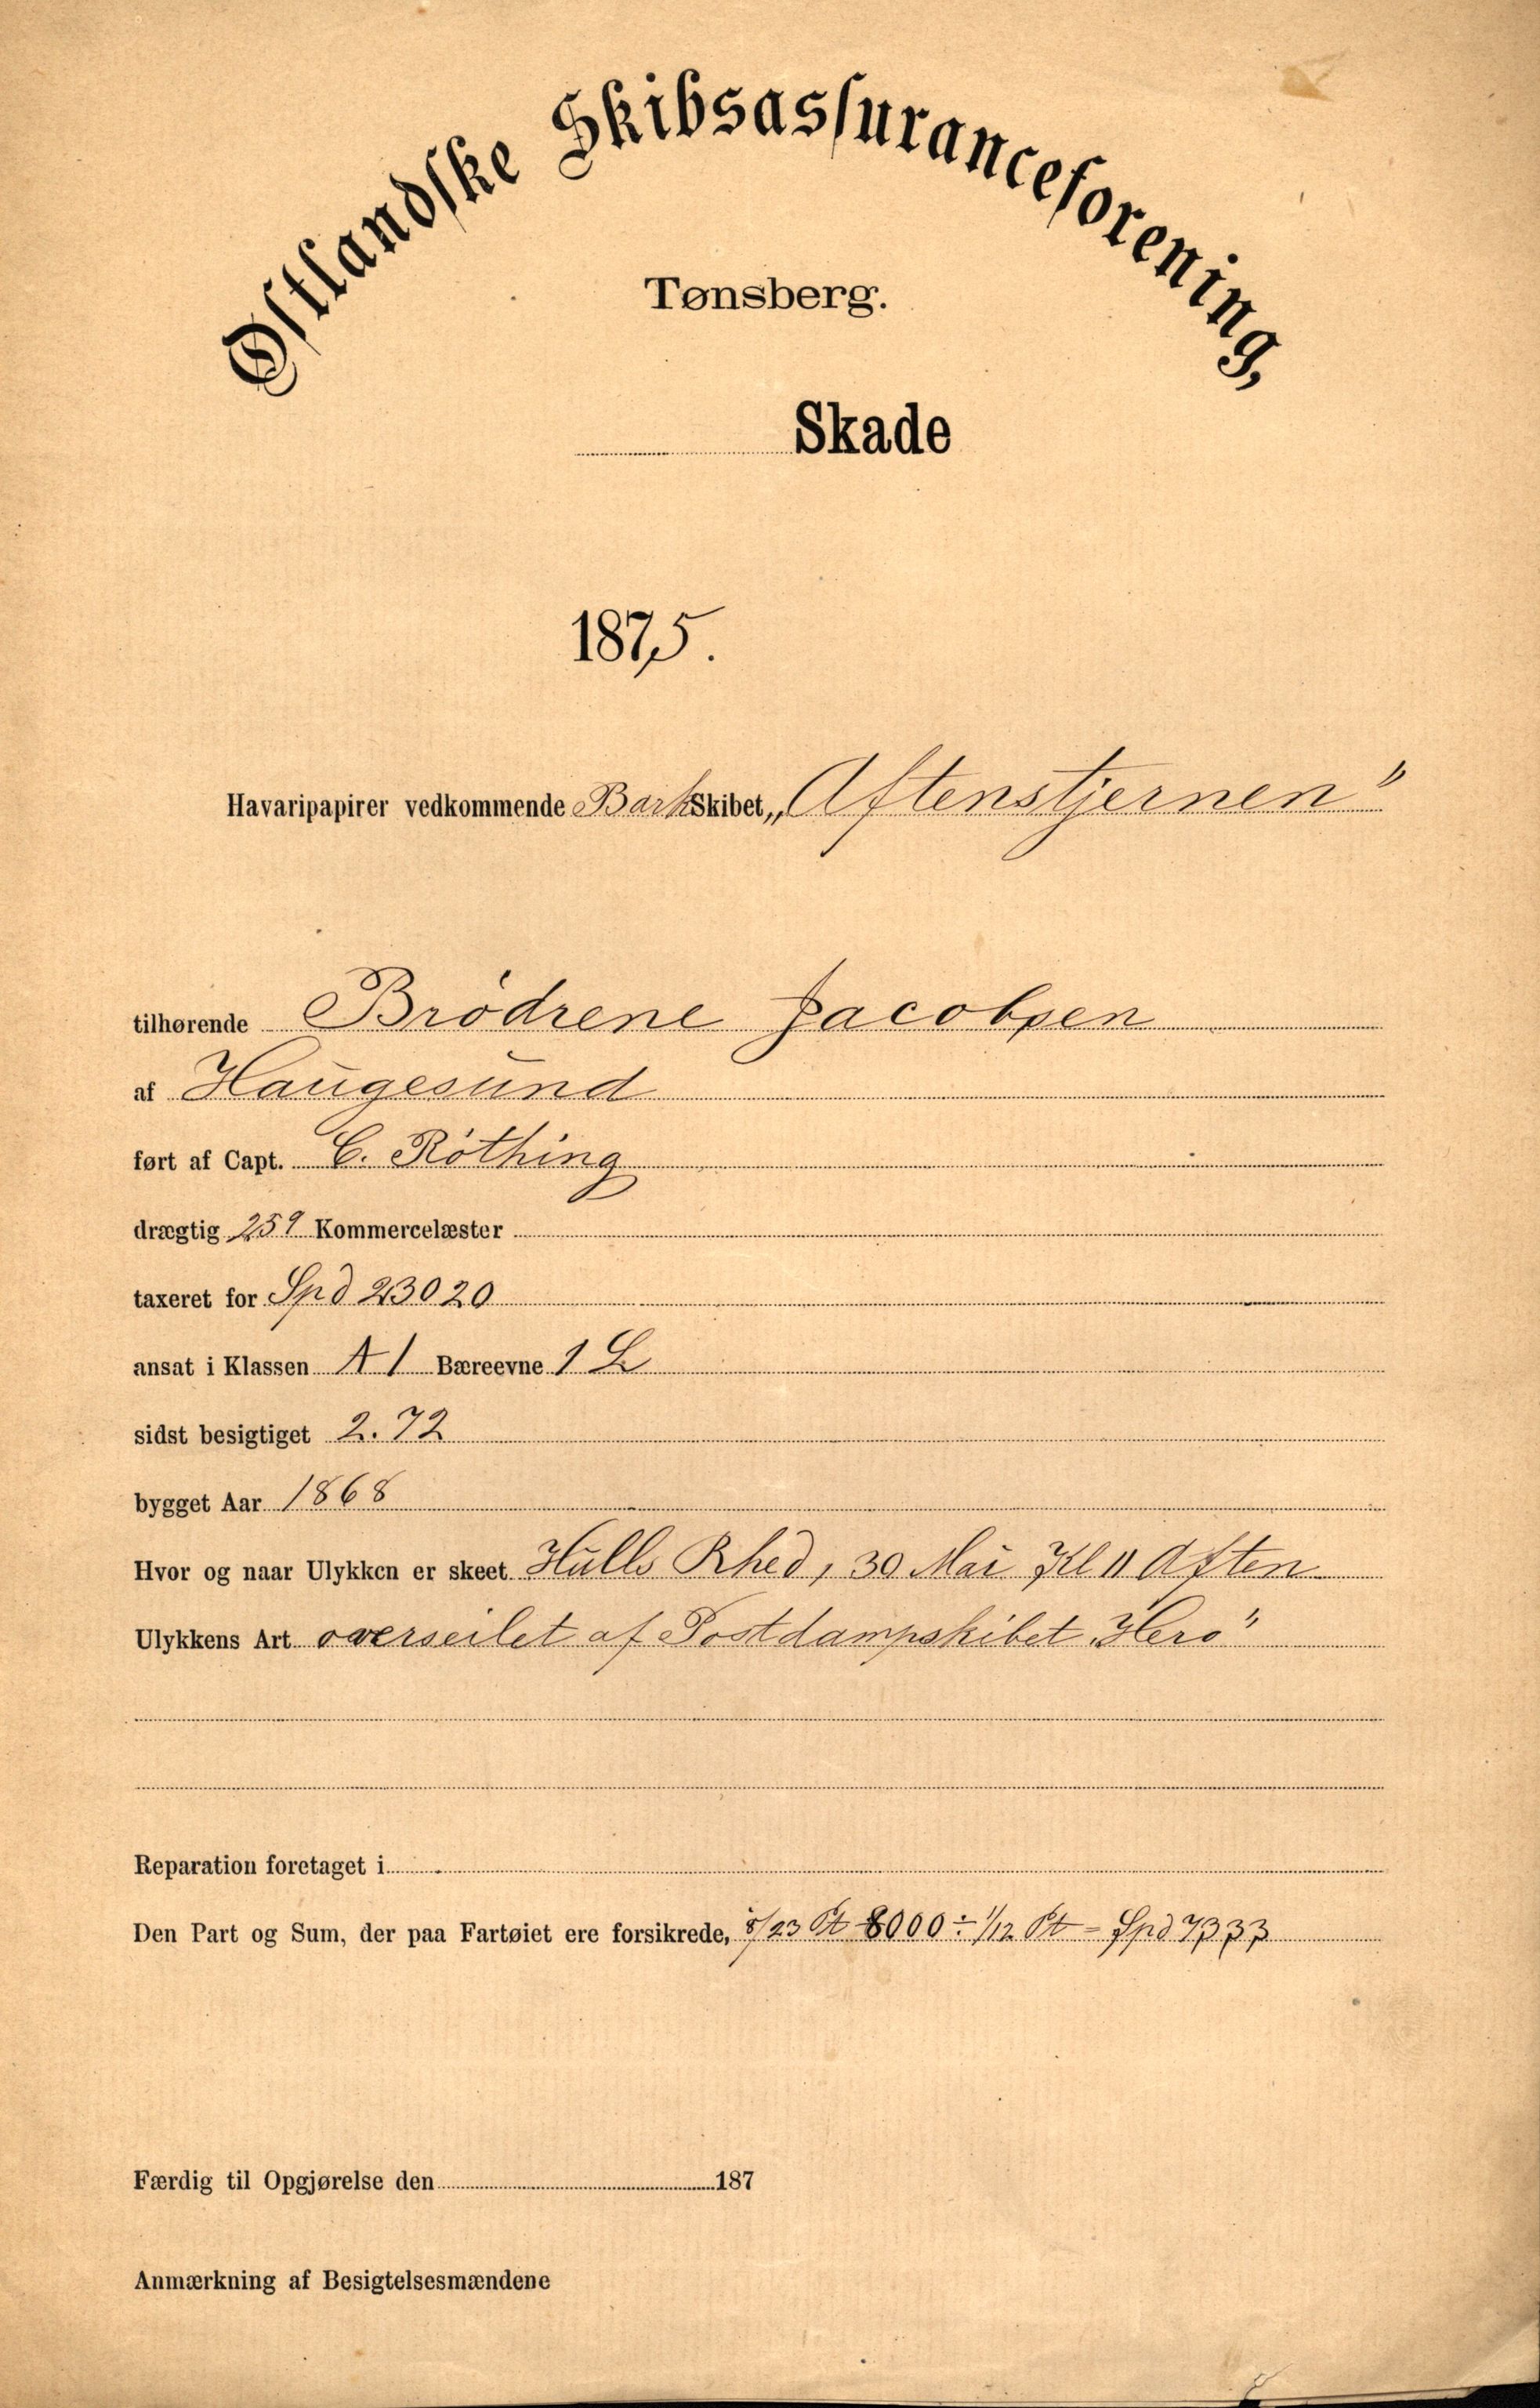 Østlandske Skibsassuranceforening,
Tønsberg.
Skade
1875.
Havaripapirer vedkommende Bark Skibet „Aftenstjernen"
tilhørende Brödrene Jacobsen
af Haugesund
ført af Capt. C. Röthing
drægtig 259 Kommercelæster
taxeret for Spd 23020
ansat i Klassen A 1 Bæreevne 1 L
sidst besigtiget 2. 72
bygget Aar 1868
Hvor og naar Ulykken er skeet Hulls Rhed, 30 Mai Kl 11 Aften
Ulykkens Art overseilet af Postdampskibet „Hero"
Reparation foretaget i
Den Part og Sum, der paa Fartøiet ere forsikrede, 8/23 Pt 8000 ÷ 1/12 Pt = Spd 7333
Færdig til Opgjørelse den 187
Anmærkning af Besigtelsesmændene